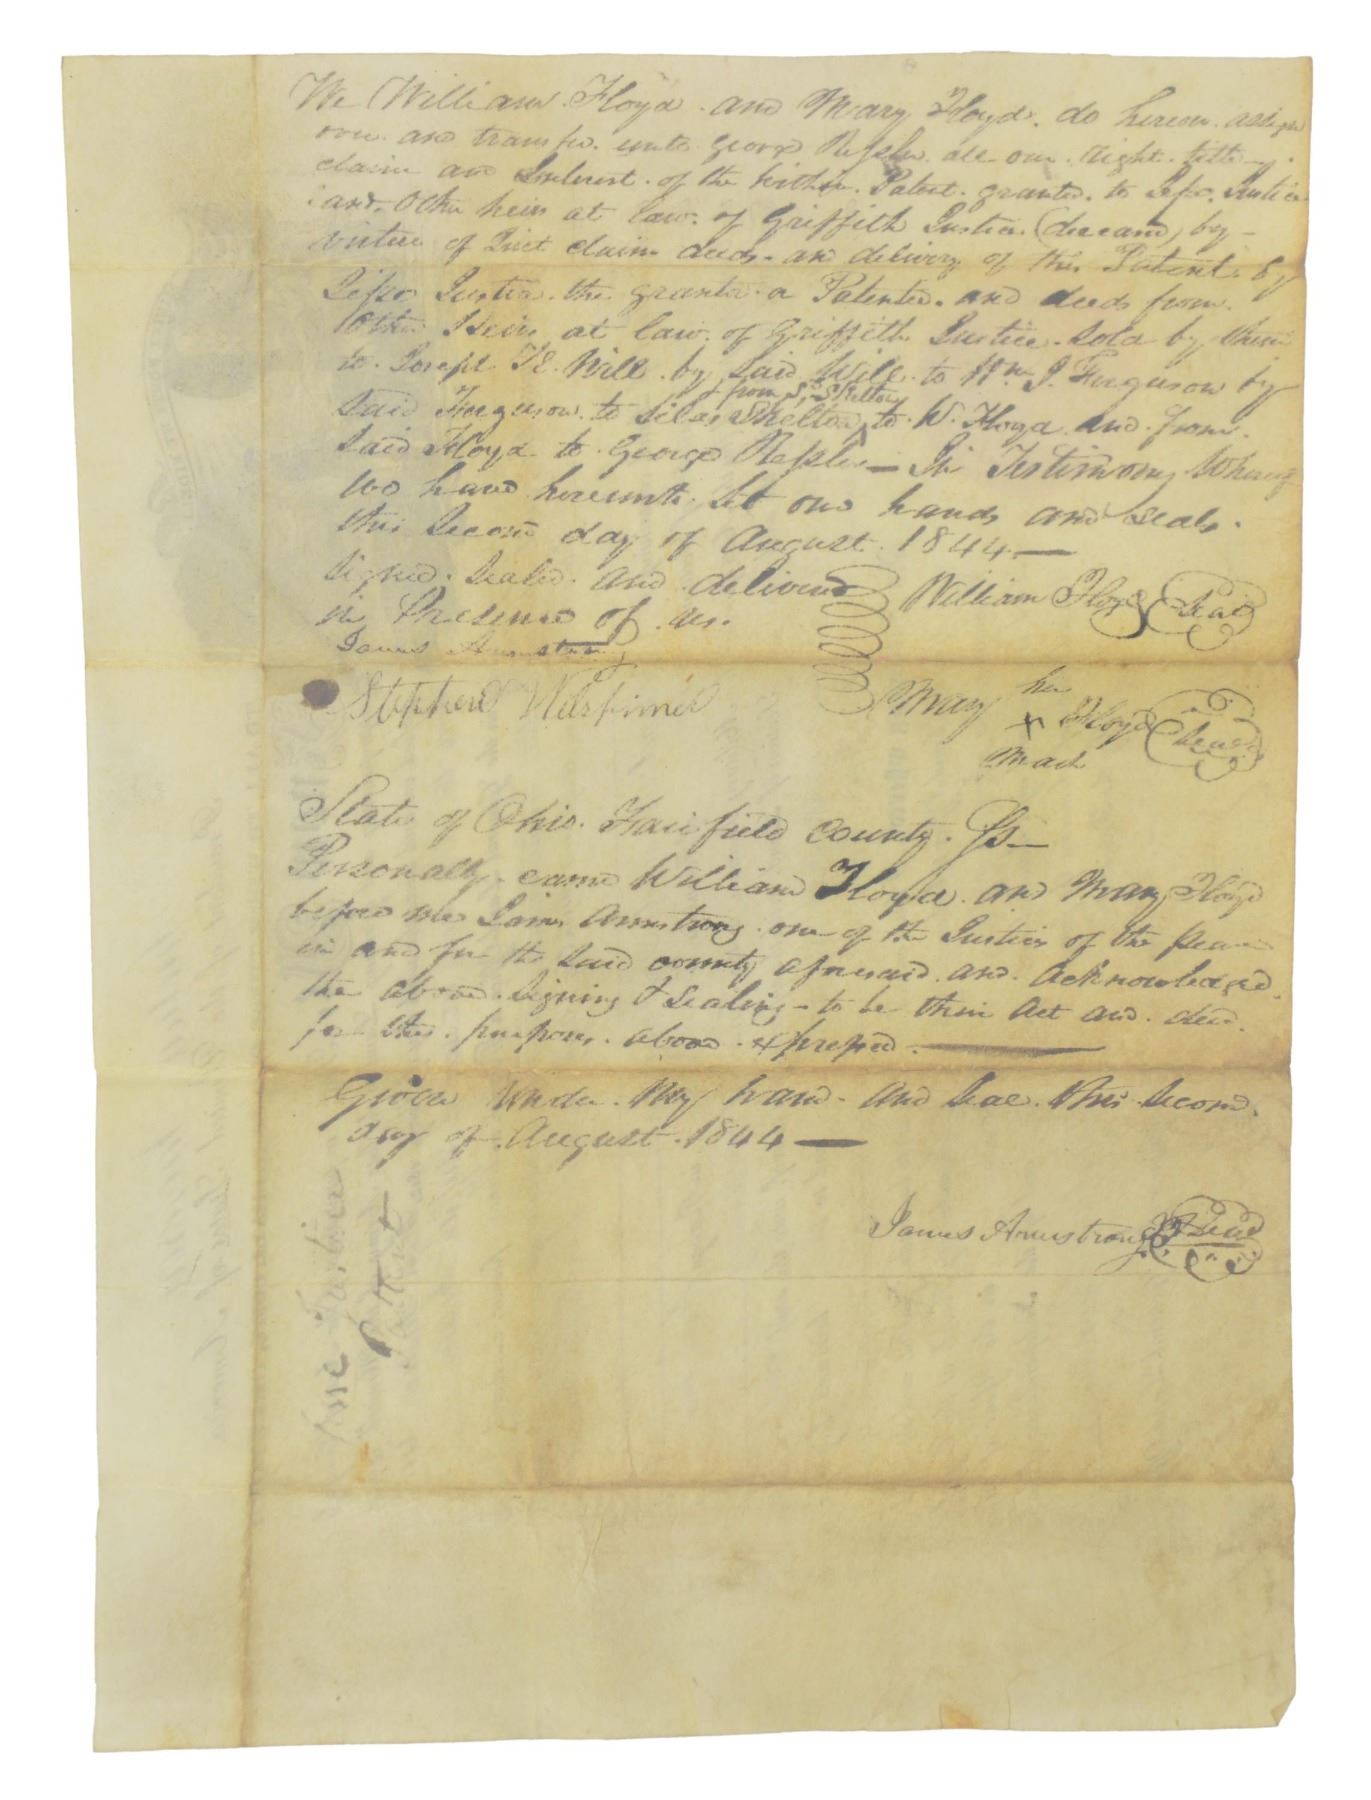 We William Floyd and Mary Floyd do hereon assign
over and transfer unto George Ressler all our right title
claim and Interest of the within Patent granted to Jesse Justice
and Other heirs at law of Griffith Justice (deceasd) by
virtue of Quit claim deeds and delivery of this Patent by
Jesse Justice the grantee a Patentee and deeds from
Other Heirs at law of Griffith Justice Sold by them
to Joseph by Said to Wm J. Ferguson by
from S. Skelton
Said Ferguson to Silas Skelton to W. Floyd and from
Said Floyd to George Ressler — In Testimony Whereof
we have hereunto Set our hands and Seals
this Second day of August 1844 —
Signed Sealed and delivered
in Presence of us
William Floyd Seal
James Armstrong
Stephen
Mary her x mark Floyd Seal
State of Ohio Fairfield County Ss —
Personally came William Floyd and Mary Floyd
before me James Armstrong one of the Justices of the peace
in and for the Said county aforesaid and Acknowledged
the above Signing & Sealing to be their Act and deed
for the purposes above expressed —
Given under My hand and Seal this Second
day of August 1844 —
James Armstrong Seal
Jesse Justice
Pattent